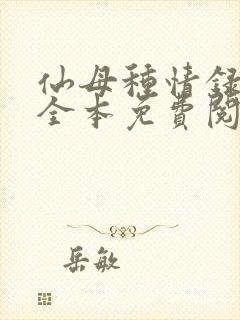 仙母種情錄
全本免費閱
岳敏